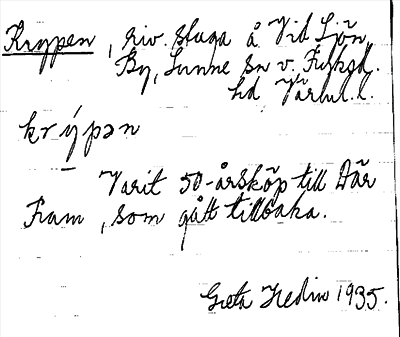 Krypen, riv. stuga å Vid Sjön,
By, Sunne sn v. Fryksd.
hd Värml. l.
krýpən
Varit 50-årsköp till Där
Fram, som gått tillbaka.
Greta Hedin 1935.